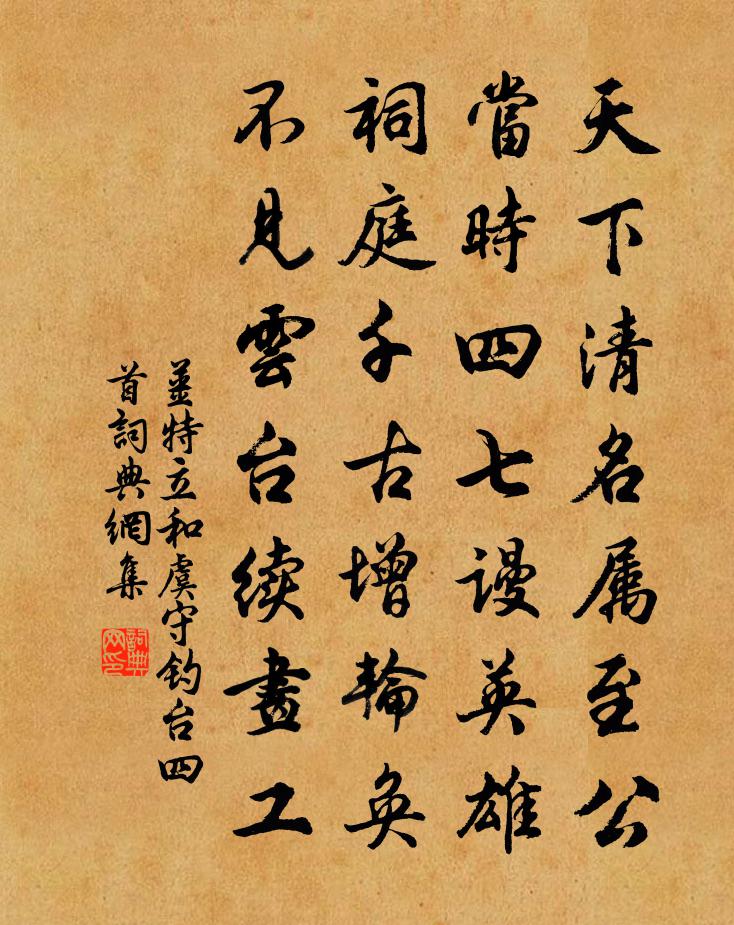 天下清名属至公
當時四七謾英雄
祠庭千古增輪奐
不見雲台续畫工
姜特立和虞守钓台四
首詞典網集
詞典网印